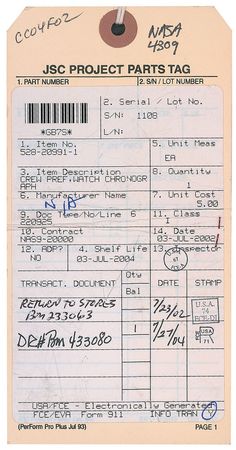 CC04F02
NASA
4309
JSC PROJECT PARTS TAG
1. PART NUMBER 2. S/N / LOT NO.
2. Serial / Lot No.
S/N: 1108
*GB7S*
1. Item No. 5. Unit Meas
528-20991-1 EA
3. Item Description 8. Quantity
CREW PREF.WATCH CHRONOGR 1
APH
6. Manufacturer Name 7. Unit Cost
N/A 5.00
9. Doc Type/No/Line 6 11. Class
220925 I
10. Contract 14. Date
NAS9-20000 03-JUL-2002
12. ADP? 4. Shelf Life 13. Inspector
NO 03-JUL-2004
TRANSACT. DOCUMENT Qty Bal DATE STAMP
RETURN TO STORES 7/23/02 U.S.A. 74
Bom 233063
1 7/27/04 USA 71
DR# Bom 433080
USA/FCE - Electronically Generated
FCE/EVA Form 911 INFO TRAN
(PerForm Pro Plus Jul 93) PAGE 1